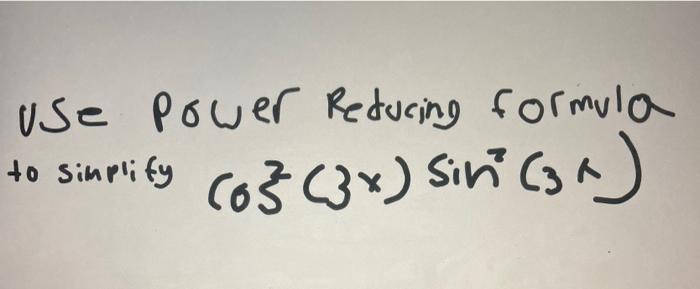 use power Reducing formula
to simplify cos²(3x) sin²(3x)